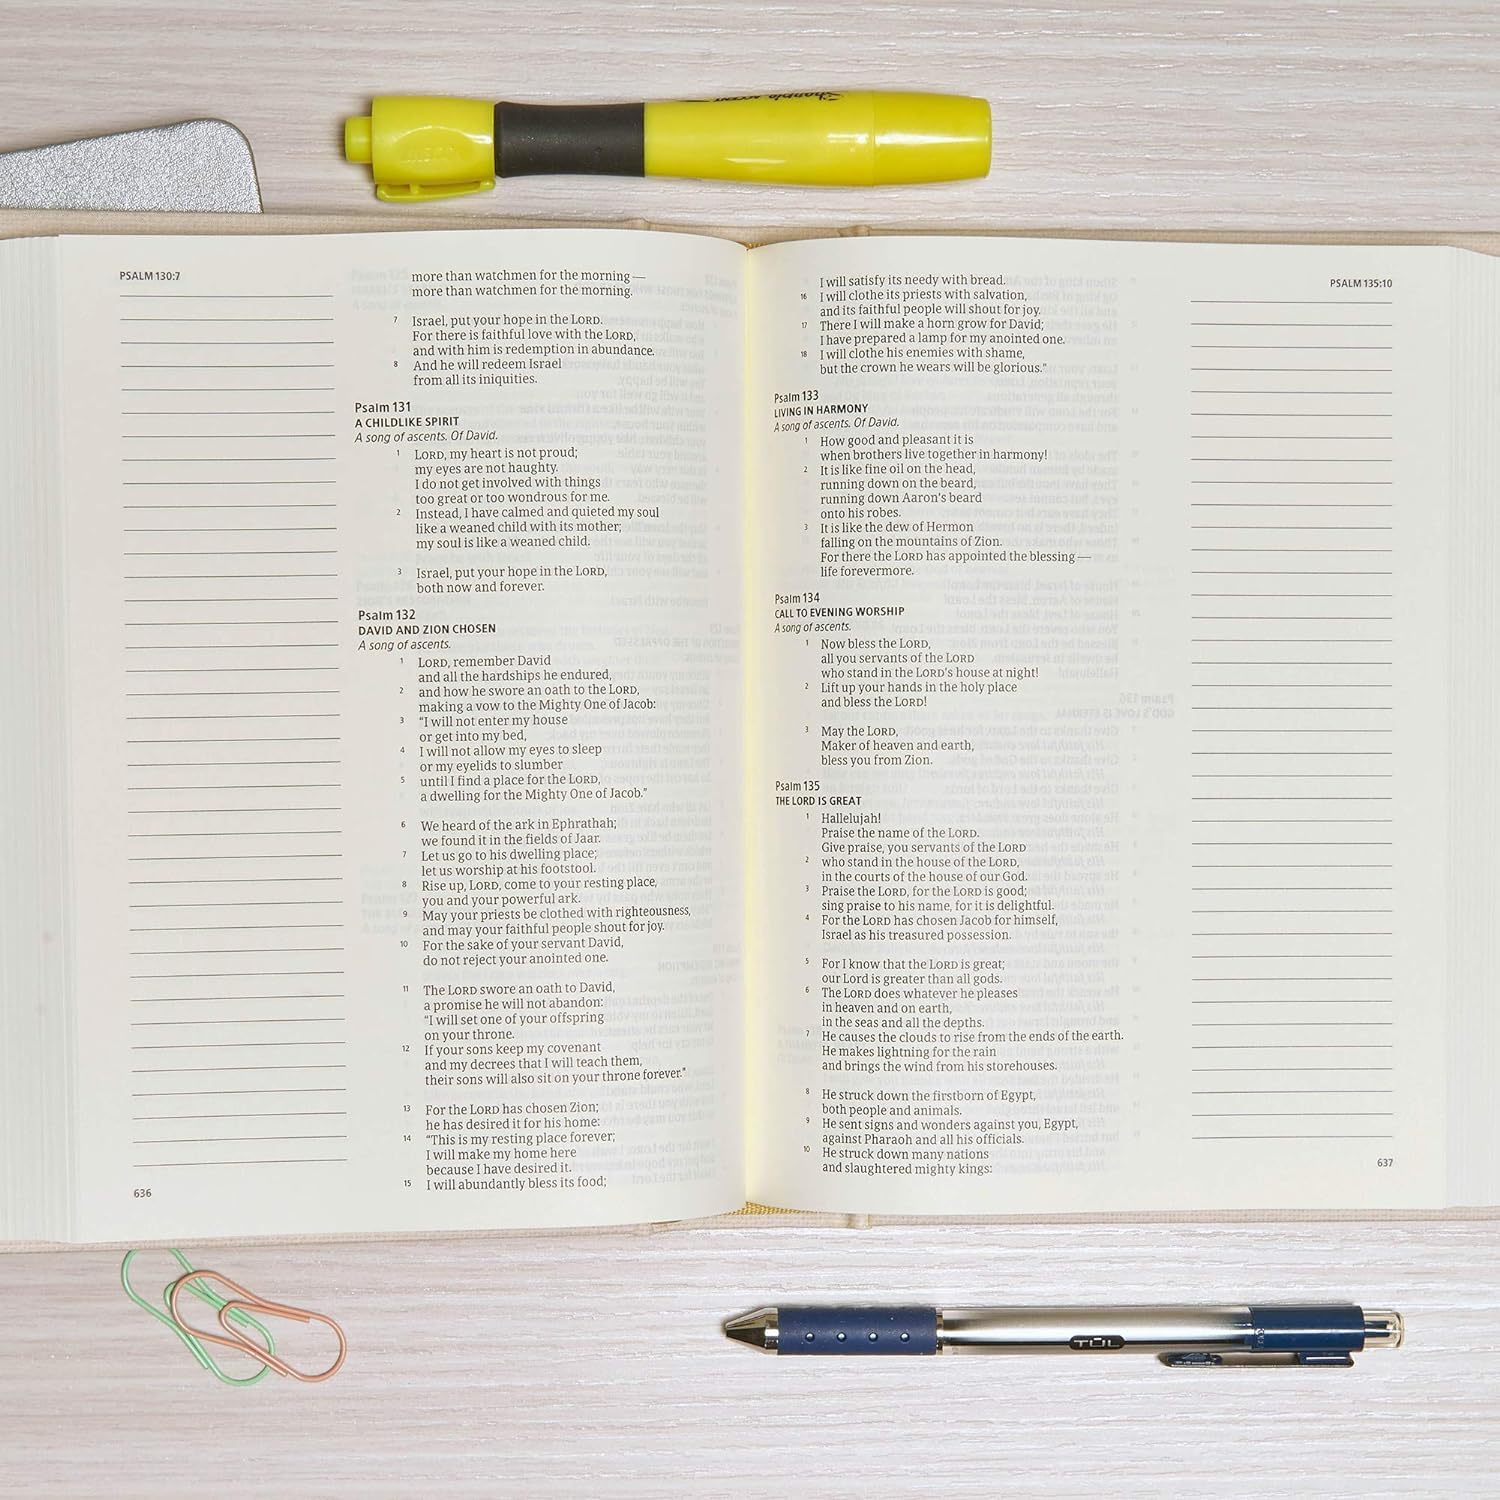 sharpie ACCENT
PSALM 130:7
more than watchmen for the morning —
more than watchmen for the morning.
7 Israel, put your hope in the LORD.
For there is faithful love with the LORD,
and with him is redemption in abundance.
8 And he will redeem Israel
from all its iniquities.
Psalm 131
A CHILDLIKE SPIRIT
A song of ascents. Of David.
1 LORD, my heart is not proud;
my eyes are not haughty.
I do not get involved with things
too great or too wondrous for me.
2 Instead, I have calmed and quieted my soul
like a weaned child with its mother;
my soul is like a weaned child.
3 Israel, put your hope in the LORD,
both now and forever.
Psalm 132
DAVID AND ZION CHOSEN
A song of ascents.
1 LORD, remember David
and all the hardships he endured,
2 and how he swore an oath to the LORD,
making a vow to the Mighty One of Jacob:
3 “I will not enter my house
or get into my bed,
4 I will not allow my eyes to sleep
or my eyelids to slumber
5 until I find a place for the LORD,
a dwelling for the Mighty One of Jacob.”
6 We heard of the ark in Ephrathah;
we found it in the fields of Jaar.
7 Let us go to his dwelling place;
let us worship at his footstool.
8 Rise up, LORD, come to your resting place,
you and your powerful ark.
9 May your priests be clothed with righteousness,
and may your faithful people shout for joy.
10 For the sake of your servant David,
do not reject your anointed one.
11 The LORD swore an oath to David,
a promise he will not abandon:
“I will set one of your offspring
on your throne.
12 If your sons keep my covenant
and my decrees that I will teach them,
their sons will also sit on your throne forever.”
13 For the LORD has chosen Zion;
he has desired it for his home:
14 “This is my resting place forever;
I will make my home here
because I have desired it.
15 I will abundantly bless its food;
636
PSALM 135:10
I will satisfy its needy with bread.
16 I will clothe its priests with salvation,
and its faithful people will shout for joy.
17 There I will make a horn grow for David;
I have prepared a lamp for my anointed one.
18 I will clothe his enemies with shame,
but the crown he wears will be glorious.”
Psalm 133
LIVING IN HARMONY
A song of ascents. Of David.
1 How good and pleasant it is
when brothers live together in harmony!
2 It is like fine oil on the head,
running down on the beard,
running down Aaron's beard
onto his robes.
3 It is like the dew of Hermon
falling on the mountains of Zion.
For there the LORD has appointed the blessing —
life forevermore.
Psalm 134
CALL TO EVENING WORSHIP
A song of ascents.
1 Now bless the LORD,
all you servants of the LORD
who stand in the LORD's house at night!
2 Lift up your hands in the holy place
and bless the LORD!
3 May the LORD,
Maker of heaven and earth,
bless you from Zion.
Psalm 135
THE LORD IS GREAT
1 Hallelujah!
Praise the name of the LORD.
Give praise, you servants of the LORD
2 who stand in the house of the LORD,
in the courts of the house of our God.
3 Praise the LORD, for the LORD is good;
sing praise to his name, for it is delightful.
4 For the LORD has chosen Jacob for himself,
Israel as his treasured possession.
5 For I know that the LORD is great;
our Lord is greater than all gods.
6 The LORD does whatever he pleases
in heaven and on earth,
in the seas and all the depths.
7 He causes the clouds to rise from the ends of the earth.
He makes lightning for the rain
and brings the wind from his storehouses.
8 He struck down the firstborn of Egypt,
both people and animals.
9 He sent signs and wonders against you, Egypt,
against Pharaoh and all his officials.
10 He struck down many nations
and slaughtered mighty kings:
637
TUL